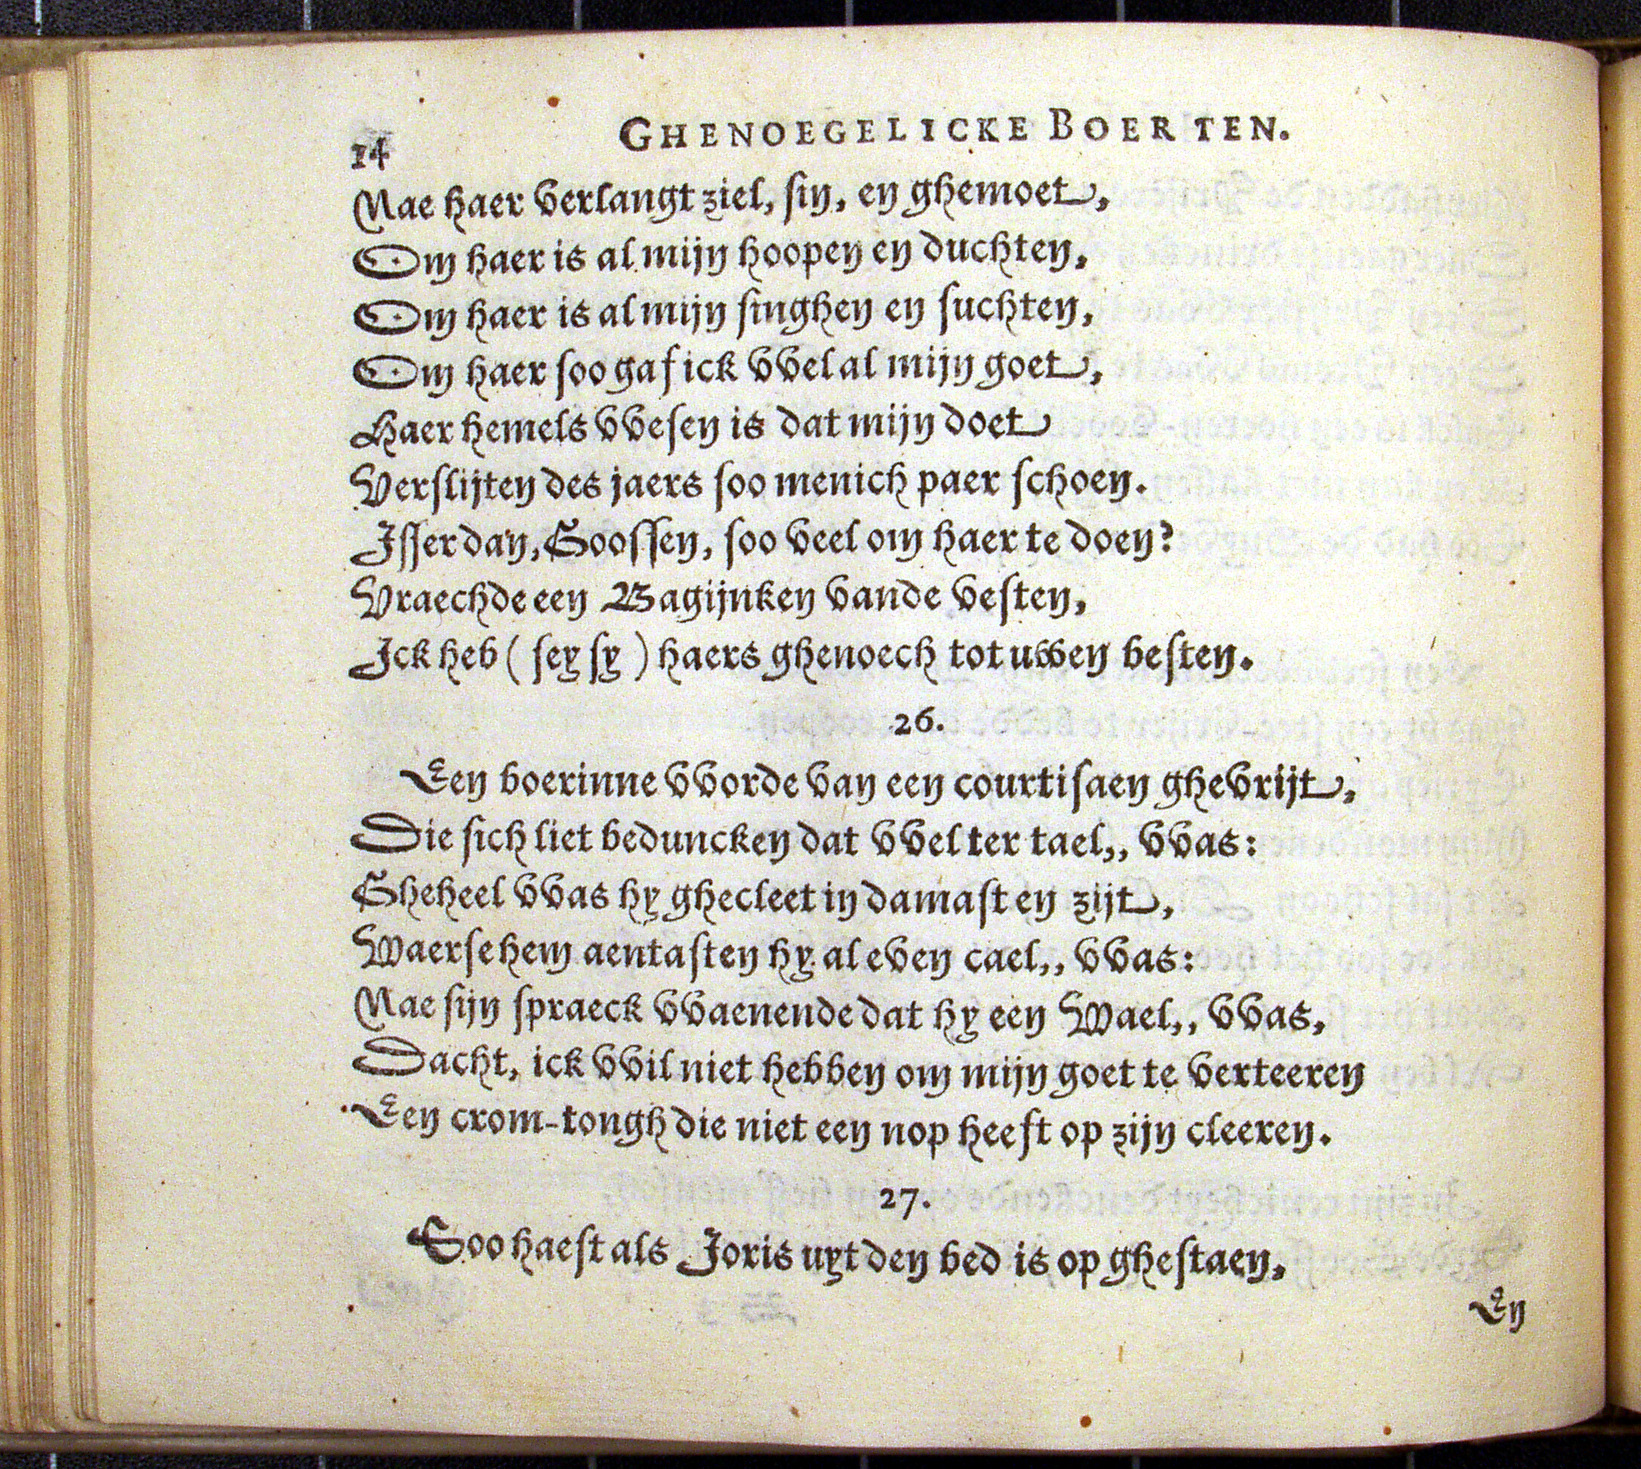 14 GHENOEGELICKE BOERTEN.
Nae haer verlangt ziel, sin, en ghemoet,
Om haer is al mijn hoopen en duchten,
Om haer is al mijn singhen en suchten,
Om haer soo gaf ick vvel al mijn goet,
Haer hemels vvesen is dat mijn doet
Verslijten des jaers soo menich paer schoen.
Isser dan, Goossen, soo veel om haer te doen?
Vraechde een Bagijnken vande vesten,
Ick heb (sey sy) haers ghenoech tot uwen besten.
26.
Een boerinne vvorde van een courtisaen ghevrijt,
Die sich liet beduncken dat vvel ter tael,, vvas:
Gheheel vvas hy ghecleet in damast en zijt,
Waer se hem aentasten hy al even cael,, vvas:
Nae sijn spraeck vvaenende dat hy een Wael,, vvas,
Dacht, ick vvil niet hebben om mijn goet te verteeren
Een crom-tongh die niet een nop heeft op zijn cleeren.
27.
Soo haest als Joris uyt den bed is op ghestaen,
En